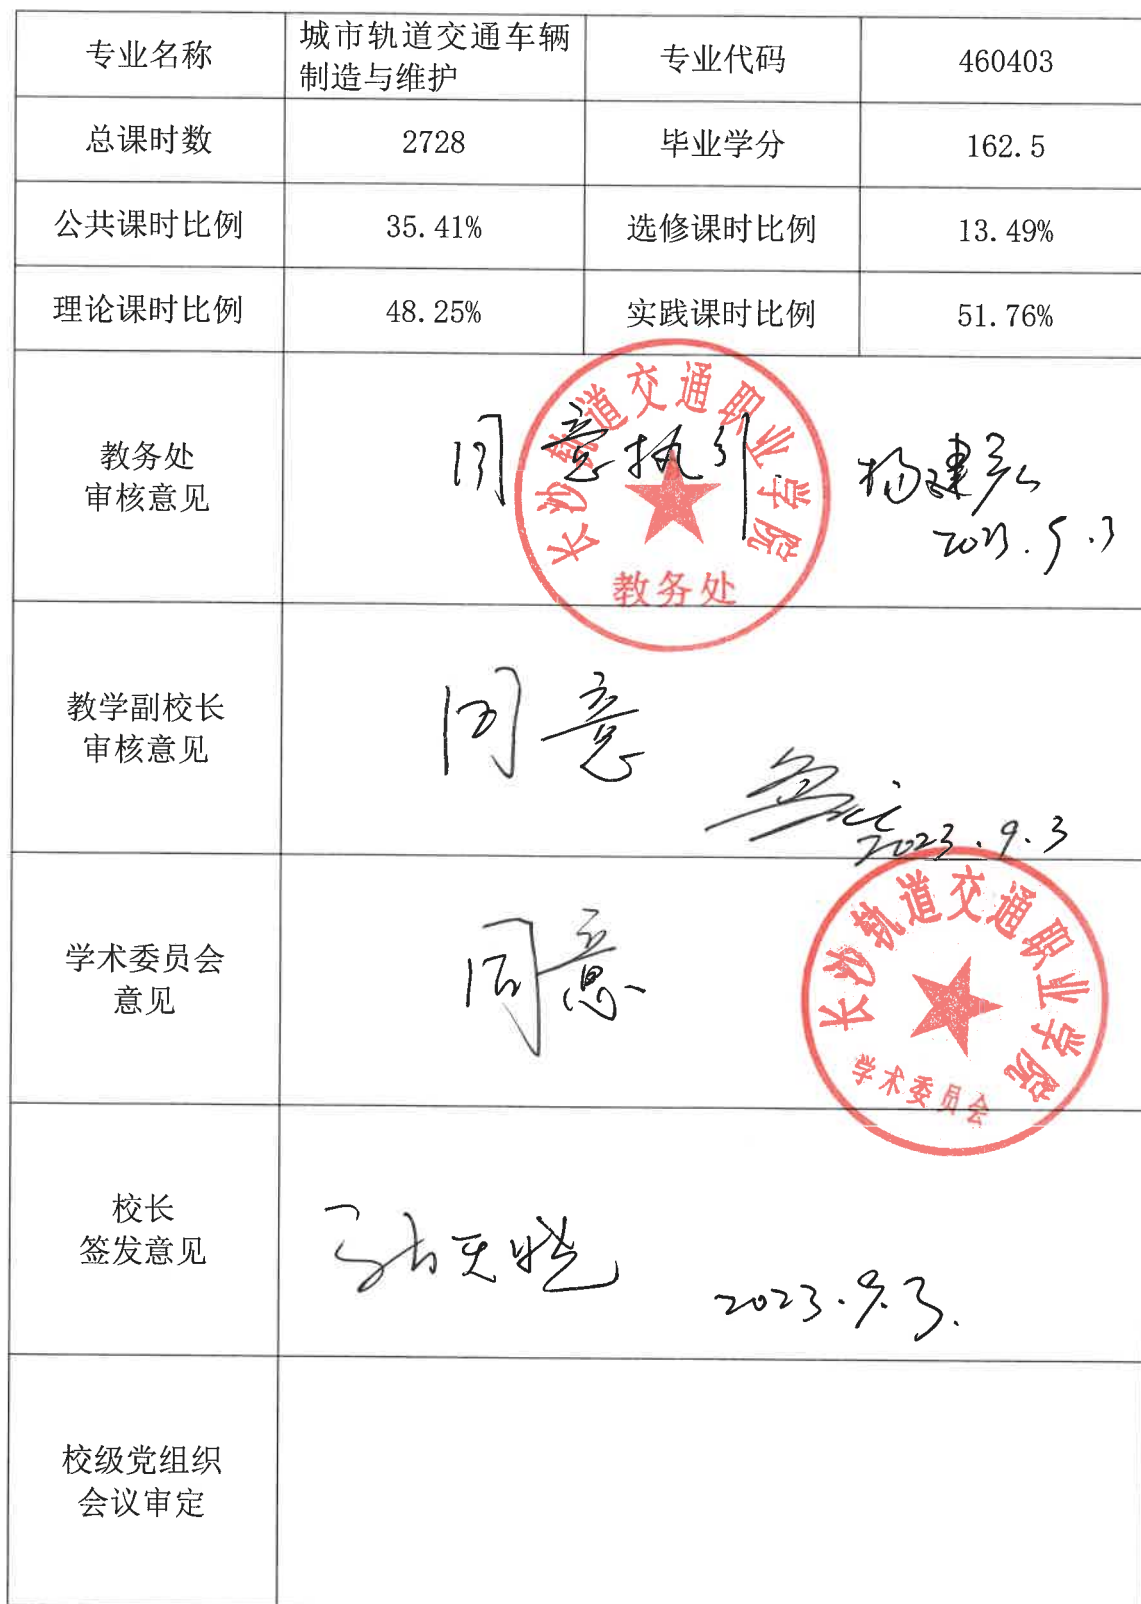 专业名称
城市轨道交通车辆
制造与维护
专业代码
460403
总课时数
2728
毕业学分
162.5
公共课时比例
35.41%
选修课时比例
13.49%
理论课时比例
48.25%
实践课时比例
51.76%
教务处
审核意见
同意执行
杨建宏
2023.9.3
长沙轨道交通职业学院
教务处
教学副校长
审核意见
同意
2023.9.3
学术委员会
意见
同意
长沙轨道交通职业学院
学术委员会
校长
签发意见
2023.9.3.
校级党组织
会议审定